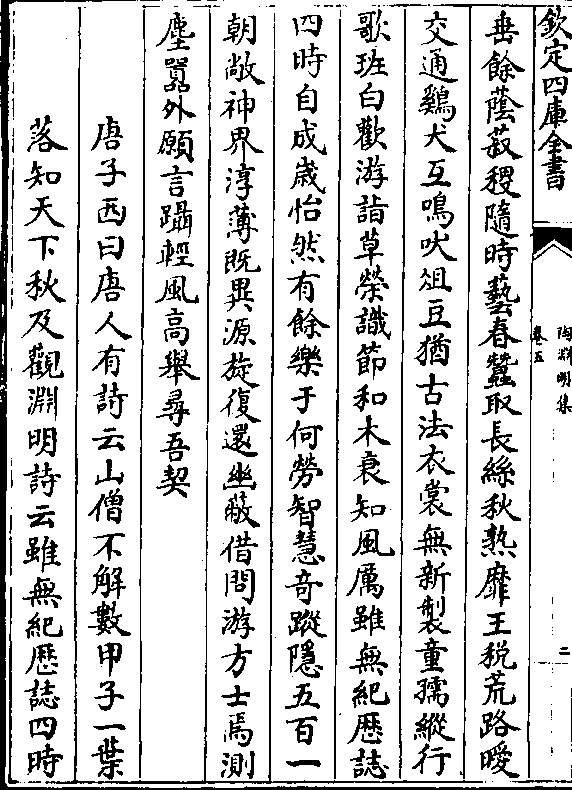 欽定四庫全書
陶淵明集
卷五
二
垂餘蔭菽稷隨時藝春蠶取長絲秋熟靡王税荒路曖
交通鷄犬互鳴吠俎豆猶古法衣裳無新製童孺縱行
歌班白歡游詣草榮識節和木衰知風厲雖無紀歴誌
四時自成歳怡然有餘樂于何勞智慧奇蹤隱五百一
朝敞神界淳薄既異源旋復還幽蔽借問游方士焉測
塵嚣外願言躡輕風高舉尋吾契
唐子西曰唐人有詩云山僧不解數甲子一葉
落知天下秋及觀淵明詩云雖無紀歴誌四時